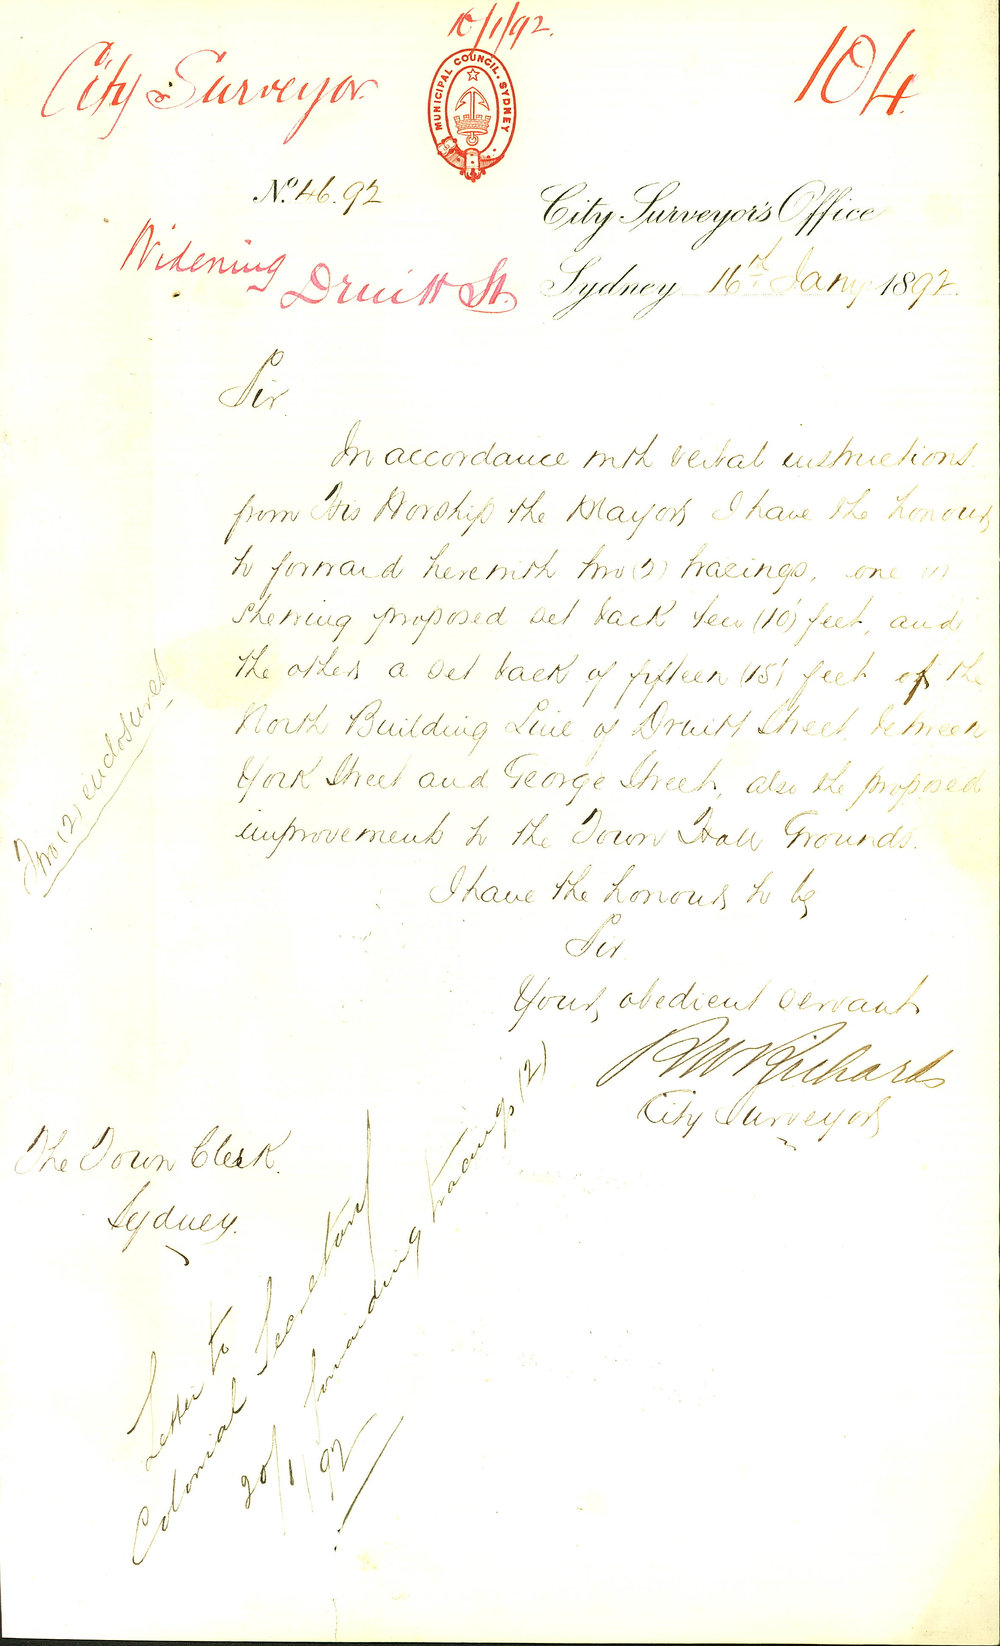 16/1/92.
City Surveyor
104
MUNICIPAL COUNCIL. SYDNEY
No. 46.92
City Surveyor's Office
Widening
Druitt St.
Sydney 16th Jany 1892
Sir
In accordance with verbal instructions
from His Worship the Mayor, I have the honour
to forward herewith two (2) tracings, one
shewing proposed set back ten (10) feet, and
the other, a set back of fifteen (15) feet of the
North Building Line of Druitt Street, between
York Street and George Street, also the proposed
improvements to the Town Hall Grounds.
Two (2) enclosures
I have the honour to be
Sir
Your obedient servant
R W Richards
City Surveyor
The Town Clerk.
Sydney.
Letter to
Colonial Secretary
forwarding tracings (2)
20/1/92